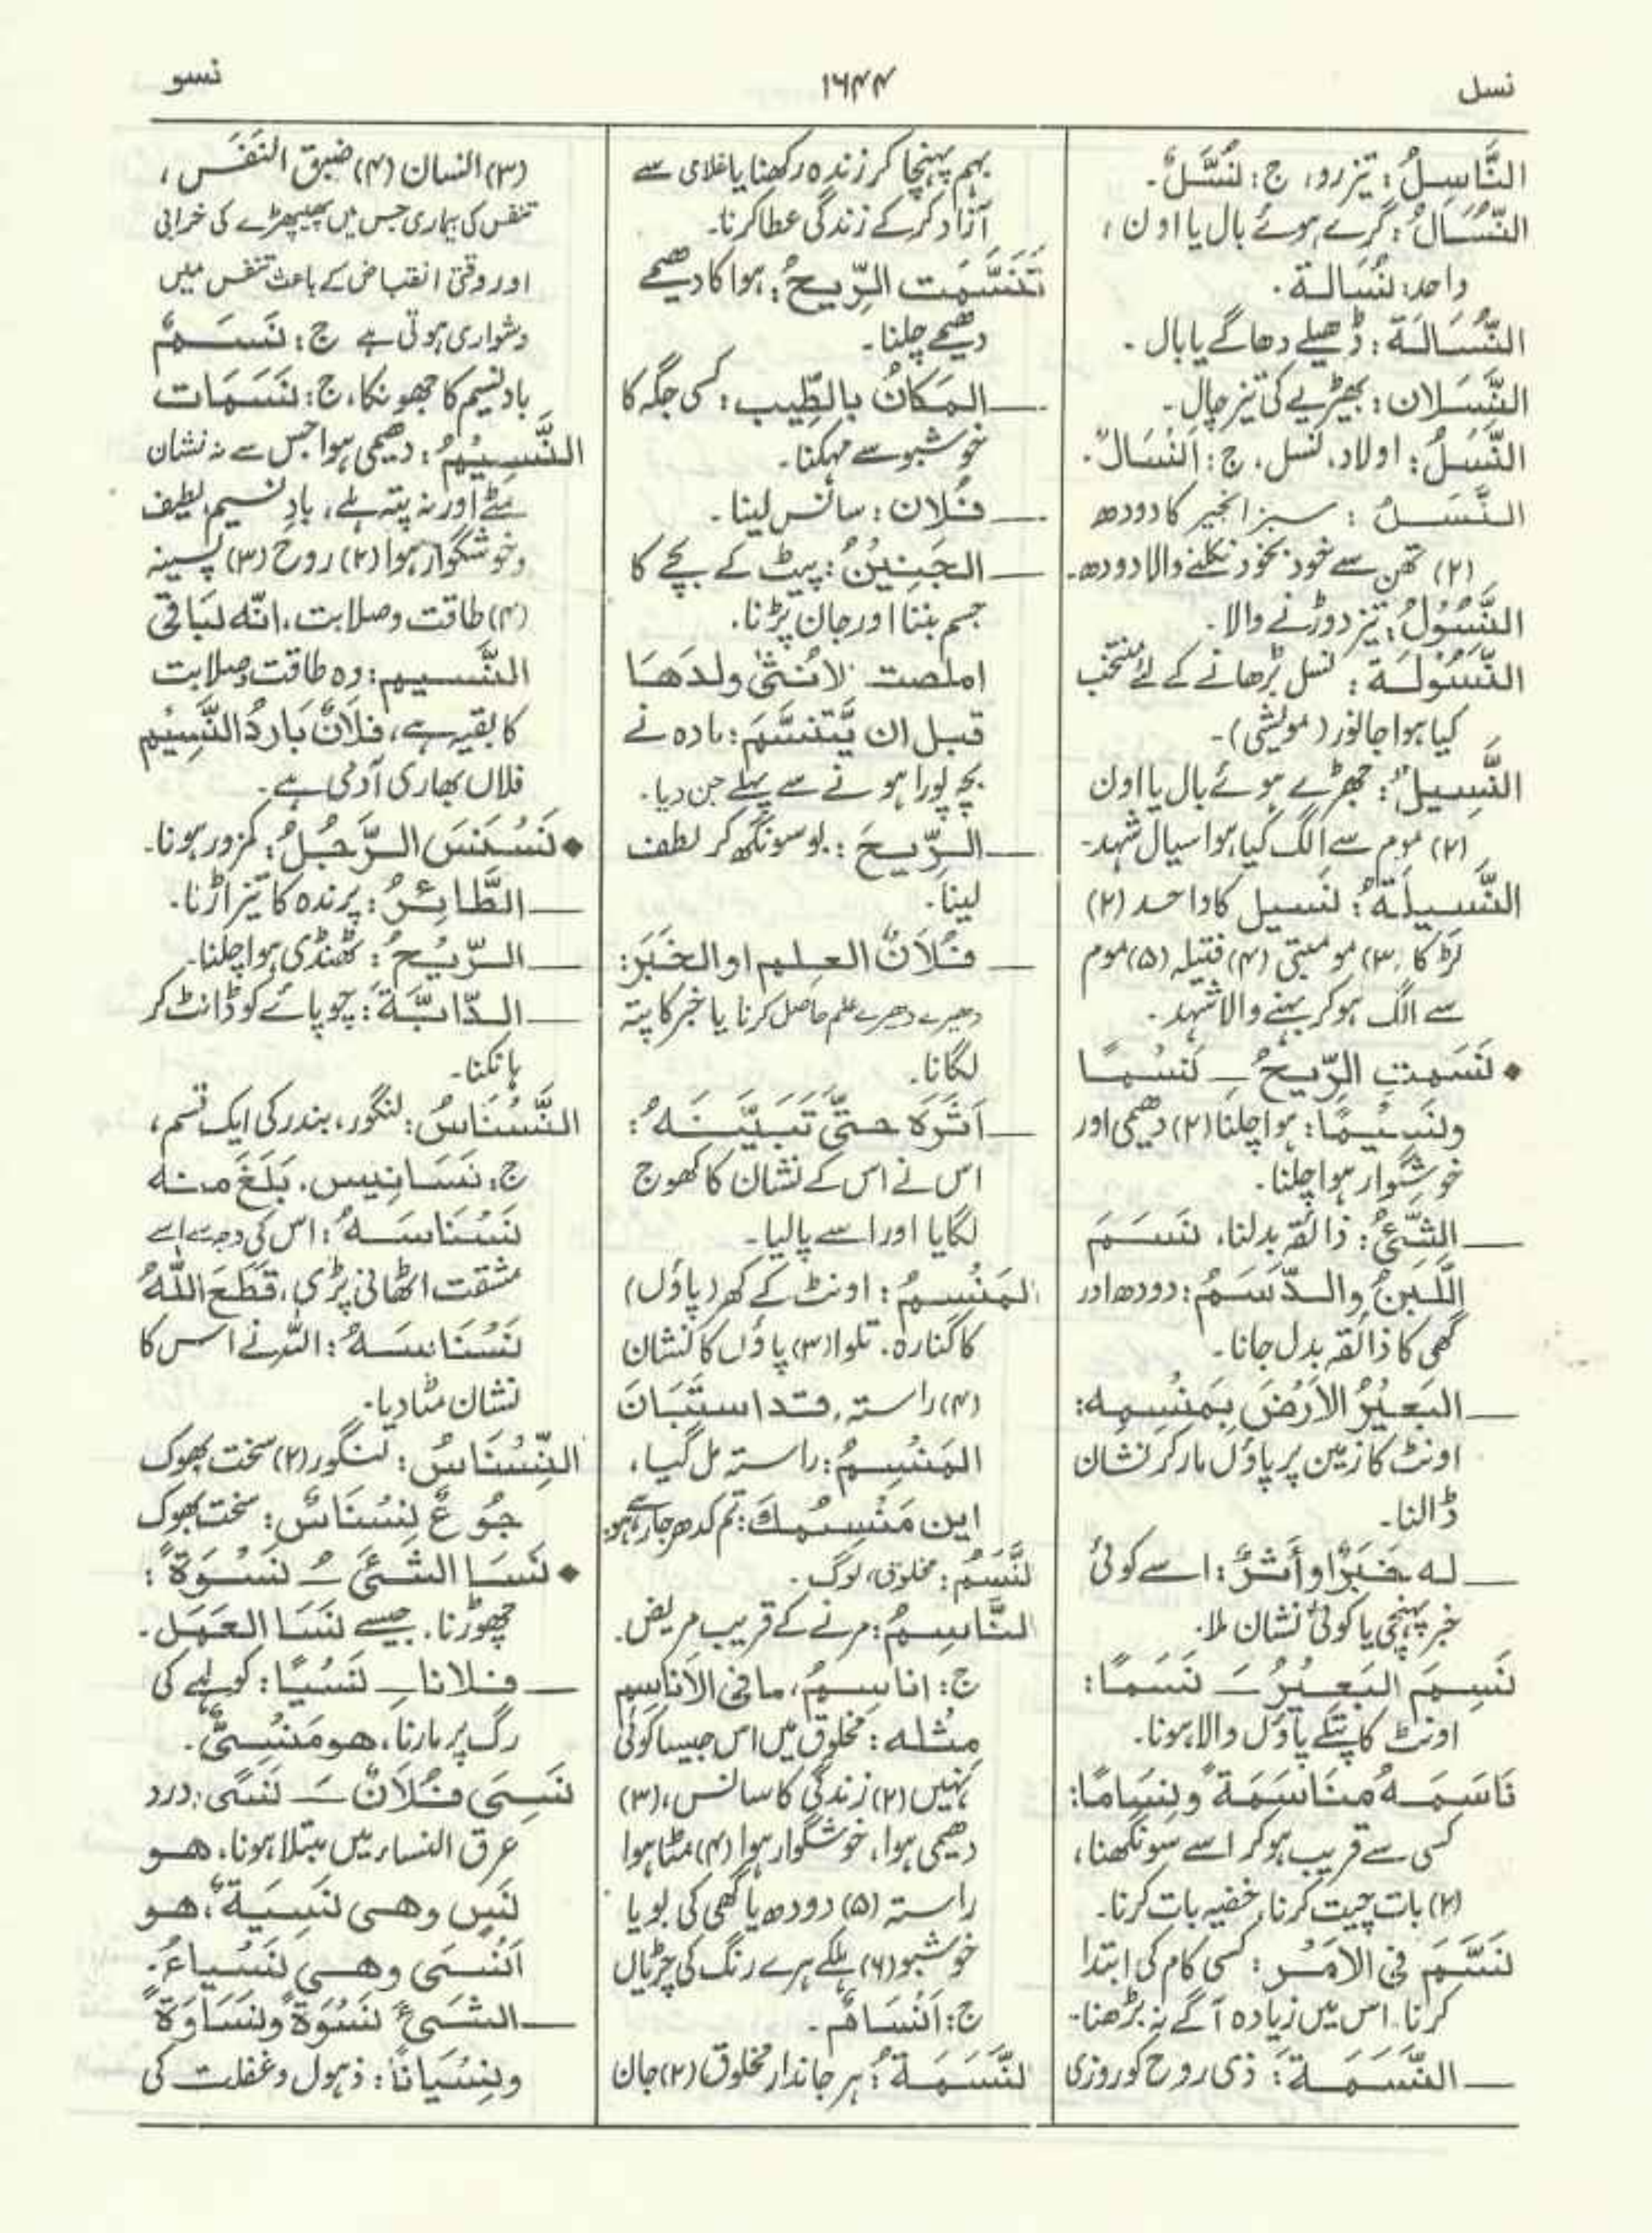 نسل
١٦٤٤
نسو
النَّاسِلُ: تیز رو، ج: نُسَّلٌ۔
النُّسَالُ: گرے ہوئے بال یا اون؛
واحد: نُسَالة۔
النُّسَالَة: ڈھیلے دھاگے یا بال۔
النَّسَلان: بھیڑیے کی تیز چال۔
النَّسْلُ: اولاد، نسل، ج: اَنْسَالٌ۔
النَّسَلُ: سبز انجیر کا دودھ
(۲) تھن سے خود بخود نکلنے والا دودھ۔
النَّسُوْلُ: تیز دوڑنے والا۔
النَّسُوْلَة: نسل بڑھانے کے لئے منتخب
کیا ہوا جانور (مویشی)۔
النَّسِيلُ: جھڑے ہوئے بال یا اون
(۲) موم سے الگ کیا ہوا سیال شہد۔
النَّسِيلَةُ: نسیل کا واحد (۲)
لڑکا (۳) موم بتی (۴) فتیلہ (۵) موم
سے الگ ہو کر بہنے والا شہد۔
◆ نَسَمَتِ الرِّيحُ ـِ نَسْمًا
ونَسِيْمًا: ہوا چلنا (۲) دھیمی اور
خوشگوار ہوا چلنا۔
ــ الشَّئُ: ذائقہ بدلنا، نَسَمَ
اللَّبَنُ والدَّسَمُ: دودھ اور
گھی کا ذائقہ بدل جانا۔
ــ البَعِيْرُ الاَرْضَ بِمَنْسِمِه:
اونٹ کا زمین پر پاؤں مار کر نشان
ڈالنا۔
ــ له خَبَرٌ او أَثَرٌ: اسے کوئی
خبر پہنچی یا کوئی نشان ملا۔
نَسِمَ البَعِيْرُ ـَ نَسَمًا:
اونٹ کا پتلے پاؤں والا ہونا۔
نَاسَمَهُ مُنَاسَمَةً ونِسَامًا:
کسی سے قریب ہو کر اسے سونگھنا،
(۲) بات چیت کرنا، خفیہ بات کرنا۔
نَسَّمَ فی الاَمْرِ: کسی کام کی ابتدا
کرنا، اس میں زیادہ آگے نہ بڑھنا۔
ــ النَّسَمَةَ: ذی روح کو روزی
بہم پہنچا کر زندہ رکھنا یا غلامی سے
آزاد کر کے زندگی عطا کرنا۔
تَنَسَّمَت الرِّيحُ: ہوا کا دھیمے
دھیمے چلنا۔
ــ المَكَانُ بالطِّيب: کسی جگہ کا
خوشبو سے مہکنا۔
ــ فُلان: سانس لینا۔
ــ الجَنِيْنُ: پیٹ کے بچے کا
جسم بننا اور جان پڑنا۔
املصت الانُثىٰ ولدَهَا
قبل ان يَّتَنَسَّمَ: مادہ نے
بچہ پورا ہونے سے پہلے جن دیا۔
ــ الرِّيحَ: بو سونگھ کر لطف
لینا۔
ــ فُلَانٌ العلم او الخَبَرَ:
دھیرے دھیرے علم حاصل کرنا یا خبر کا پتہ
لگانا۔
ــ اَثَرَه حتّى تَبَيَّنَهُ:
اس نے اس کے نشان کا کھوج
لگایا اور اسے پا لیا۔
المَنْسِمُ: اونٹ کے کھر (پاؤں)
کا کنارہ۔ تلوا (۳) پاؤں کا نشان
(۴) راستہ، قد استَبَانَ
المَنْسِمُ: راستہ مل گیا،
این مَنْسِمُكَ: تم کدھر جا رہے ہو؟
النَّسَمُ: مخلوق، لوگ۔
النَّاسِمُ: مرنے کے قریب مریض۔
ج: اناسِمُ، ما فی الاَناسِم
مِثْله: مخلوق میں اس جیسا کوئی
نہیں (۲) زندگی کا سانس، (۳)
دھیمی ہوا، خوشگوار ہوا (۴) مٹا ہوا
راستہ (۵) دودھ یا گھی کی بو یا
خوشبو (۶) ہلکے ہرے رنگ کی چڑیاں
ج: اَنْسَامٌ۔
النَّسَمَةُ: ہر جاندار مخلوق (۲) جان
(۳) انسان (۴) ضیق النفَس،
تنفس کی بیماری جس میں پھیپھڑے کی خرابی
اور وقتی انقباض کے باعث تنفس میں
دشواری ہوتی ہے ج: نَسَمٌ
باد نسیم کا جھونکا، ج: نَسَمَات
النَّسِيْمُ: دھیمی ہوا جس سے نہ نشان
مٹے اور نہ پتہ ہلے، بادِ نسیم، لطیف
و خوشگوار ہوا (۲) روح (۳) پسینہ
(۴) طاقت و صلابت، انّه لبَاقی
النَّسيم: وہ طاقت و صلابت
کا بقیہ ہے، فلانٌ بَارِدُ النَّسِيْمِ
فلاں بھاری آدمی ہے۔
◆ نَسْنَسَ الرَّجُلُ: کمزور ہونا۔
ــ الطَّائِرُ: پرندہ کا تیز اڑنا۔
ــ الرِّيْحُ: ٹھنڈی ہوا چلنا۔
ــ الدَّابَّةَ: چوپائے کو ڈانٹ کر
ہانکنا۔
النَّسْنَاسُ: لنگور، بندر کی ایک قسم،
ج: نَسَانِيس، بَلَغَ منه
نَسْنَاسَهُ: اس کی وجہ سے اسے
مشقت اٹھانی پڑی، قَطَعَ اللهُ
نَسْنَاسَهُ: اللہ نے اس کا
نشان مٹا دیا۔
النِّسْنَاسُ: لنگور (۲) سخت بھوک
جُوعٌ نِسْنَاسٌ: سخت بھوک
◆ نَسَا الشَّئَ ـُ نَسْوَةً:
چھوڑنا، جیسے نَسَا العَمَل۔
ــ فلانا ـِ نَسْيًا: کولہے کی
رگ پر مارنا، هو مَنْسِىٌّ۔
نَسِىَ فُلَانٌ ـَ نَسًى: درد
عرق النساء میں مبتلا ہونا، هو
نَسٍ وهى نَسِيَةٌ، هو
اَنْسٰى وهى نَسْياءُ۔
ــ الشَئَ نَسْوَةً ونَسَاوَةً
ونِسْيَانًا: ذہول و غفلت کی